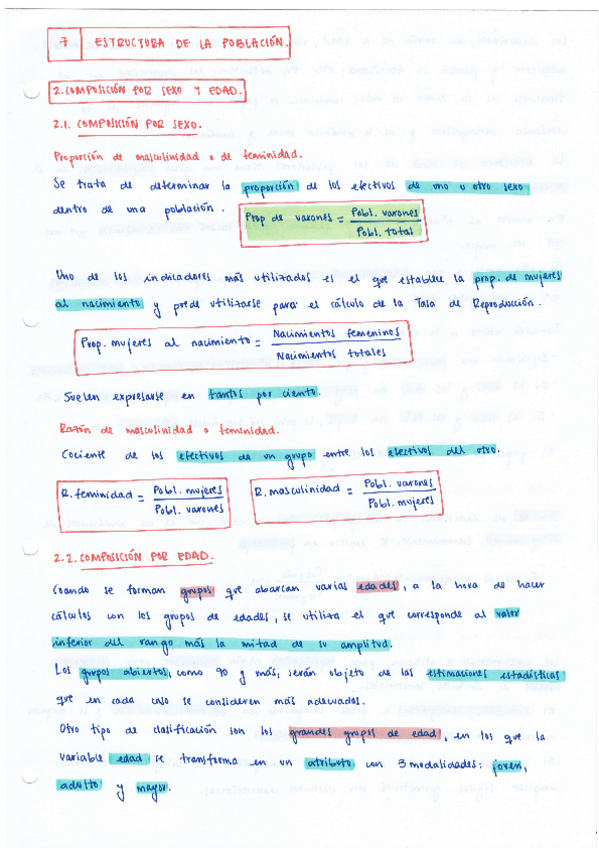 7 ESTRUCTURA DE LA POBLACIÓN.
2. COMPOSICIÓN POR SEXO Y EDAD.
2.1. COMPOSICIÓN POR SEXO.
Proporción de masculinidad o de feminidad.
Se trata de determinar la proporción de los efectivos de uno u otro sexo
dentro de una población.
Prop de varones = Pobl. varones / Pobl. total
Uno de los indicadores más utilizados es el que establece la prop. de mujeres
al nacimiento y puede utilizarse para el cálculo de la Tasa de Reproducción.
Prop. mujeres al nacimiento = Nacimientos femeninos / Nacimientos totales
Suelen expresarse en tantos por ciento.
Razón de masculinidad o feminidad.
Cociente de los efectivos de un grupo entre los efectivos del otro.
R. feminidad = Pobl. mujeres / Pobl. varones
R. masculinidad = Pobl. varones / Pobl. mujeres
2.2. COMPOSICIÓN POR EDAD.
Cuando se forman grupos que abarcan varias edades, a la hora de hacer
cálculos con los grupos de edades, se utiliza el que corresponde al valor
inferior del rango más la mitad de su amplitud.
Los grupos abiertos, como 90 y más, serán objeto de las estimaciones estadísticas
que en cada caso se consideren más adecuados.
Otro tipo de clasificación son los grandes grupos de edad, en los que la
variable edad se transforma en un atributo con 3 modalidades: joven,
adulto y mayor.